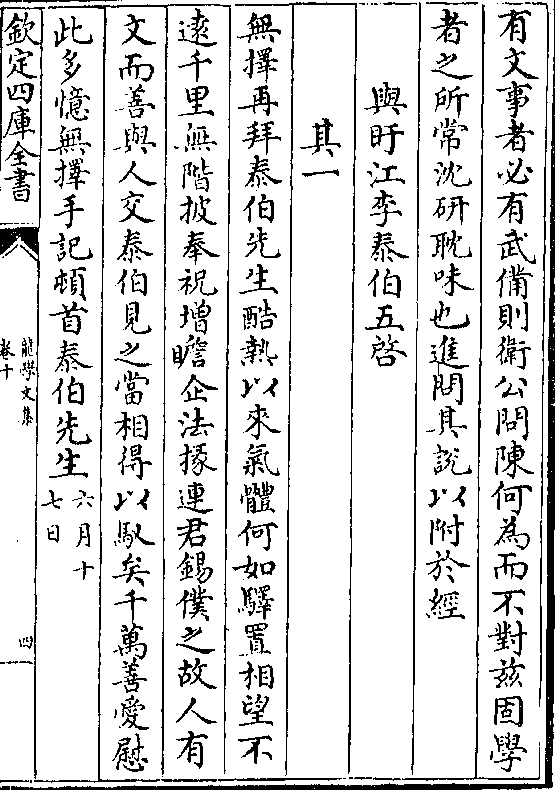 有文事者必有武備則衛公問陳何為而不對兹固學
者之所常沈研耽味也進問其說以附於經
與盱江李泰伯五啓
其一
無擇再拜泰伯先生酷熱以來氣體何如驛置相望不
逺千里無階披奉祝增瞻企法掾連君錫僕之故人有
文而善與人交泰伯見之當相得以馭矣千萬善愛慰
此多憶無擇手記頓首泰伯先生六月十
七日
欽定四庫全書
龍學文集
卷十
四